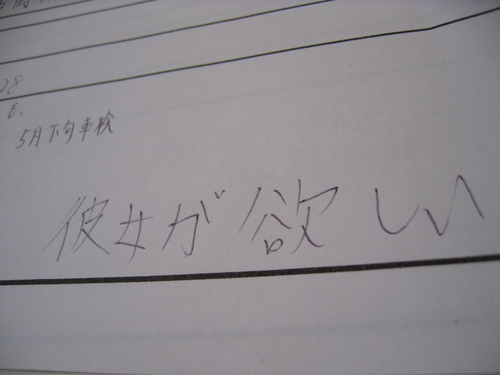 28
6.
5月下旬車検
彼女が欲しい